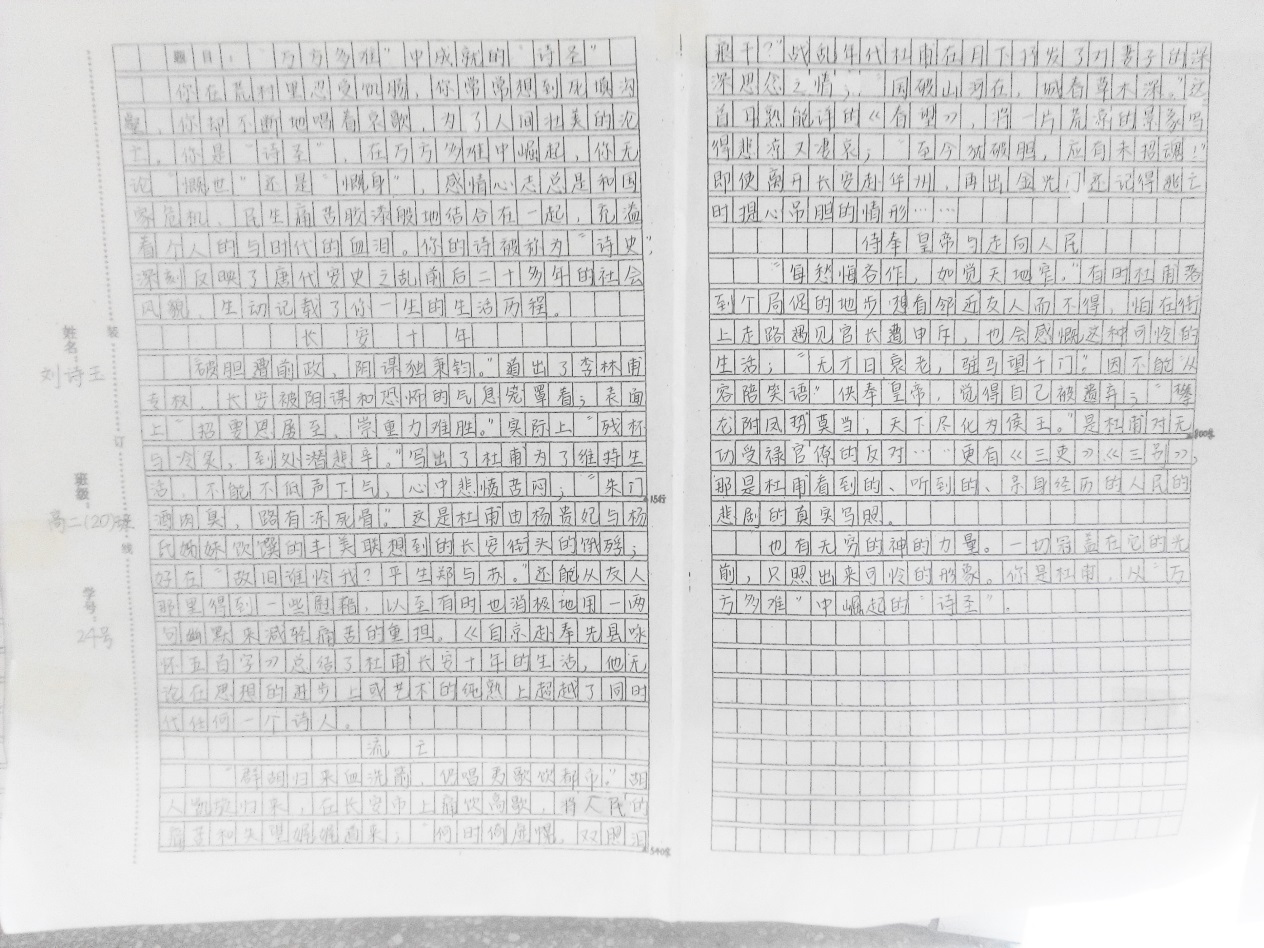 题目：“万方多难”中成就的“诗圣”
你在荒村里忍受饥肠，你常常想到死填沟
壑，你却不断地唱着哀歌，为了人间壮美的沦
亡。你是“诗圣”，在万方多难中崛起，你无
论“慨世”还是“慨身”，感情心志总是和国
家危机、民生痛苦胶漆般地结合在一起，充溢
着个人的与时代的血泪。你的诗被称为“诗史”，
深刻反映了唐代安史之乱前后二十多年的社会
风貌，生动记载了你一生的生活历程。
长安十年
“破胆遭前政，阴谋独秉钧。”道出了李林甫
专权，长安被阴谋和恐怖的气息笼罩着；表面
上“招要恩屡至，崇重力难胜。”实际上“残杯
与冷炙，到处潜悲辛。”写出了杜甫为了维持生
活，不能不低声下气，心中悲愤苦闷；“朱门
酒肉臭，路有冻死骨。”这是杜甫由杨贵妃与杨
氏姊妹饮馔的丰美联想到的长安街头的饿殍；
好在“故旧谁怜我？平生郑与苏。”还能从友人
那里得到一些慰藉，以至有时也消极地用一两
句幽默来减轻痛苦的重担。《自京赴奉先县咏
怀五百字》总结了杜甫长安十年的生活，他无
论在思想的进步上或艺术的纯熟上超越了同时
代任何一个诗人。
流亡
“群胡归来血洗箭，仍唱夷歌饮都市。”胡
人凯旋归来，在长安市上痛饮高歌，将人民的
痛苦和失望娓娓道来；“何时倚虚幌，双照泪
痕干？”战乱年代杜甫在月下抒发了对妻子的深
深思念之情；“国破山河在，城春草木深。”这
首耳熟能详的《春望》，将一片荒凉的景象写
得悲凉又凄哀；“至今犹破胆，应有未招魂！”
即使离开长安赴华州，再出金光门还记得逃亡
时提心吊胆的情形……
侍奉皇帝与走向人民
“每愁悔吝作，如觉天地窄。”有时杜甫落
到个局促的地步想看邻近友人而不得，怕在街
上走路遇见官长遭申斥，也会感慨这种可怜的
生活；“无才日衰老，驻马望千门”因不能“从
容陪笑语”侍奉皇帝，觉得自己被遗弃；“攀
龙附凤势莫当，天下尽化为侯王。”是杜甫对无
功受禄官僚的反对……更有《三吏》《三别》，
那是杜甫看到的、听到的、亲身经历的人民的
悲剧的真实写照。
也有无穷的神的力量。一切冠盖在它的光
前，只照出来可怜的形象。你是杜甫，从“万
方多难”中崛起的“诗圣”。
姓名：
刘诗玉
班级：
高二(20)班
学号：
24号
装
订
线